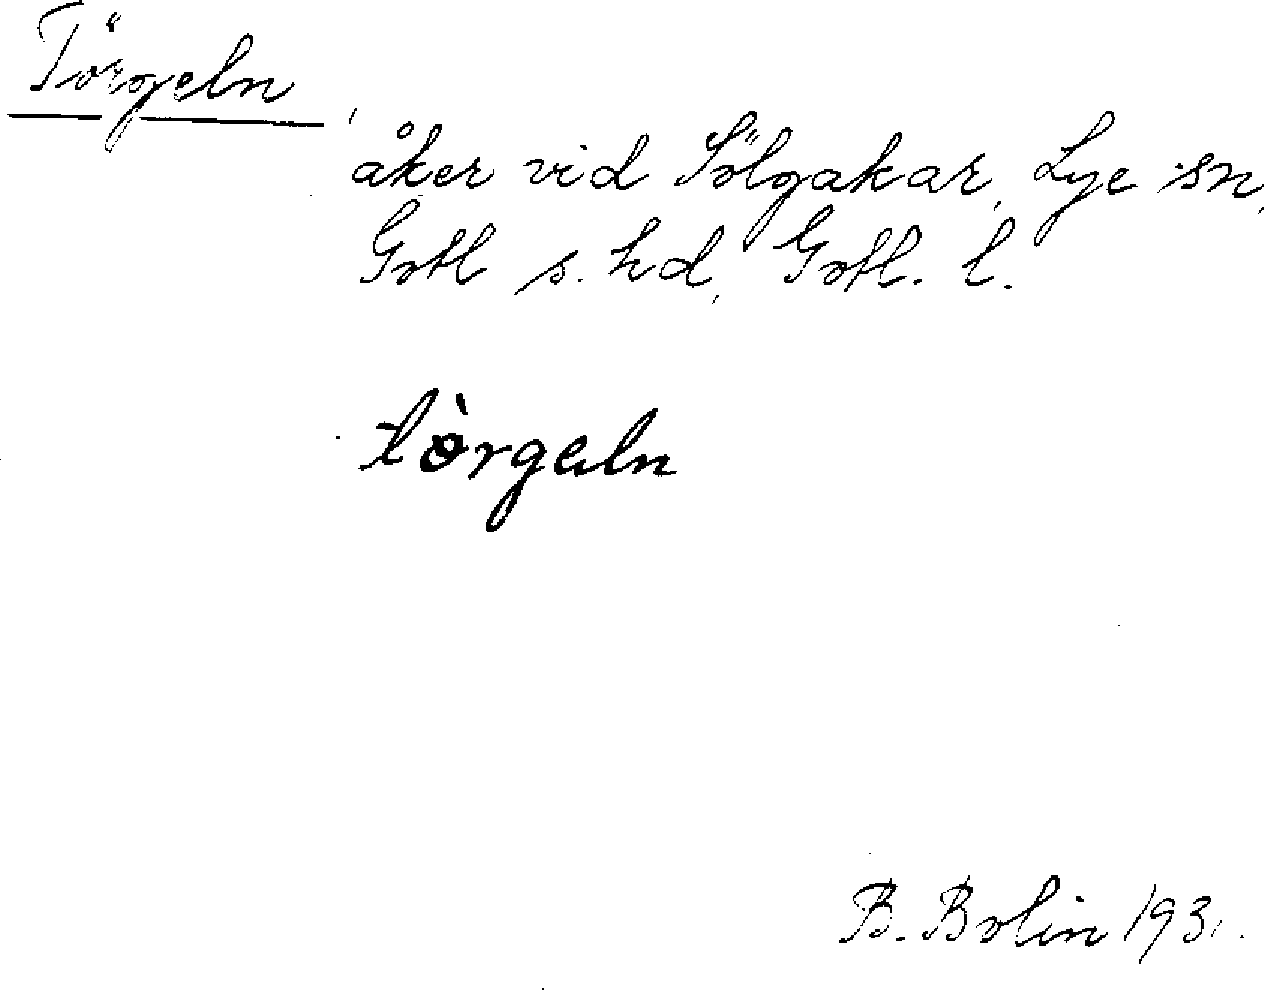 Törgeln
åker vid Sölgakar, Lye sn,
Gotl s. hd, Gotl. l.
tòrgeln
B. Bolin 1931.